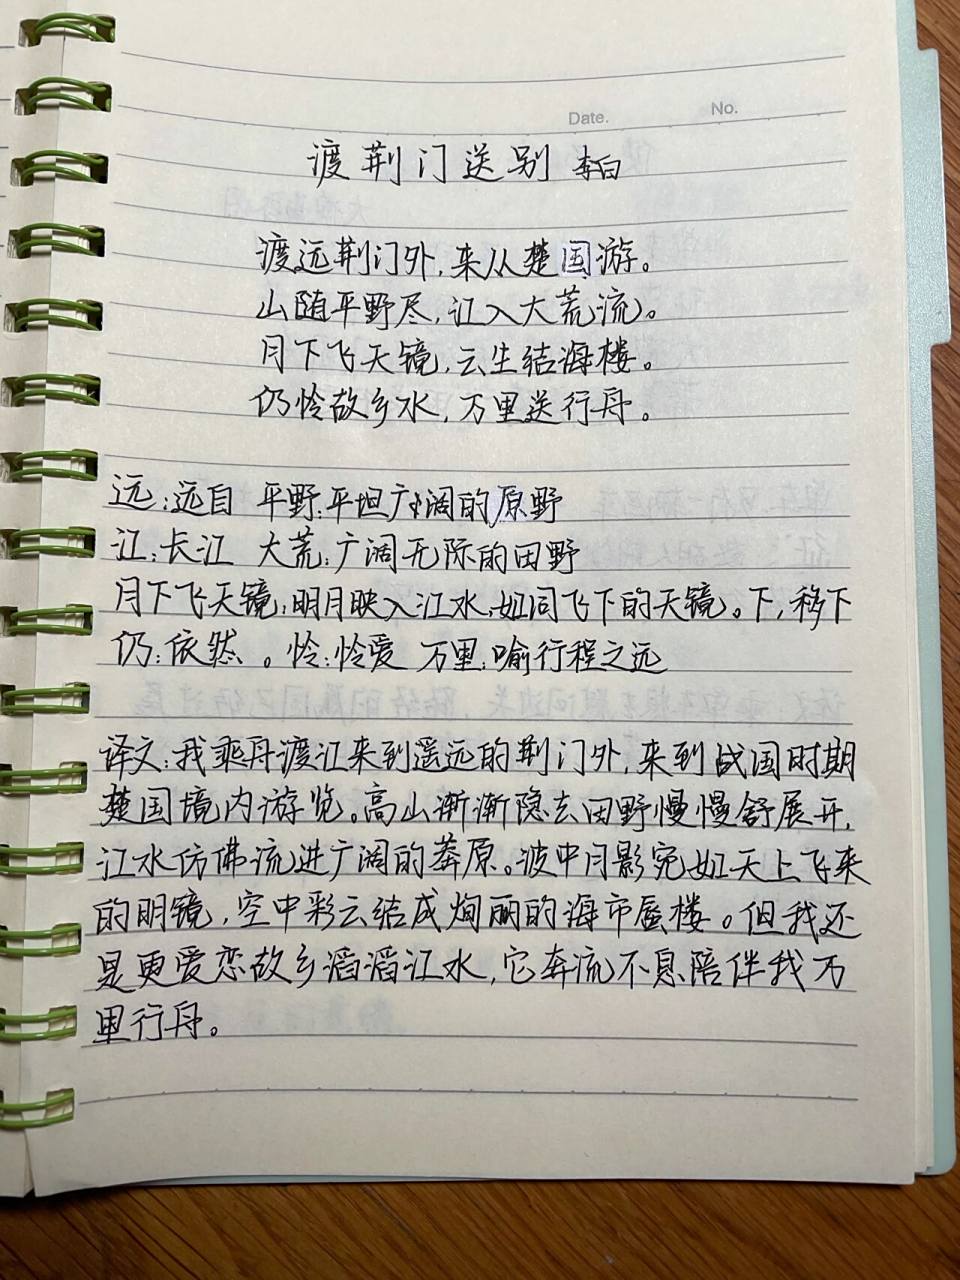 Date. No.
渡荆门送别 李白
渡远荆门外,来从楚国游。
山随平野尽,江入大荒流。
月下飞天镜,云生结海楼。
仍怜故乡水,万里送行舟。
远:远自 平野:平坦广阔的原野
江:长江 大荒:广阔无际的田野
月下飞天镜:明月映入江水,如同飞下的天镜。下,移下
仍:依然。怜:怜爱 万里:喻行程之远
译文:我乘舟渡江来到遥远的荆门外,来到战国时期
楚国境内游览。高山渐渐隐去田野慢慢舒展开,
江水仿佛流进广阔的莽原。波中月影宛如天上飞来
的明镜,空中彩云结成绚丽的海市蜃楼。但我还
是更爱恋故乡滔滔江水,它奔流不息陪伴我万
里行舟。